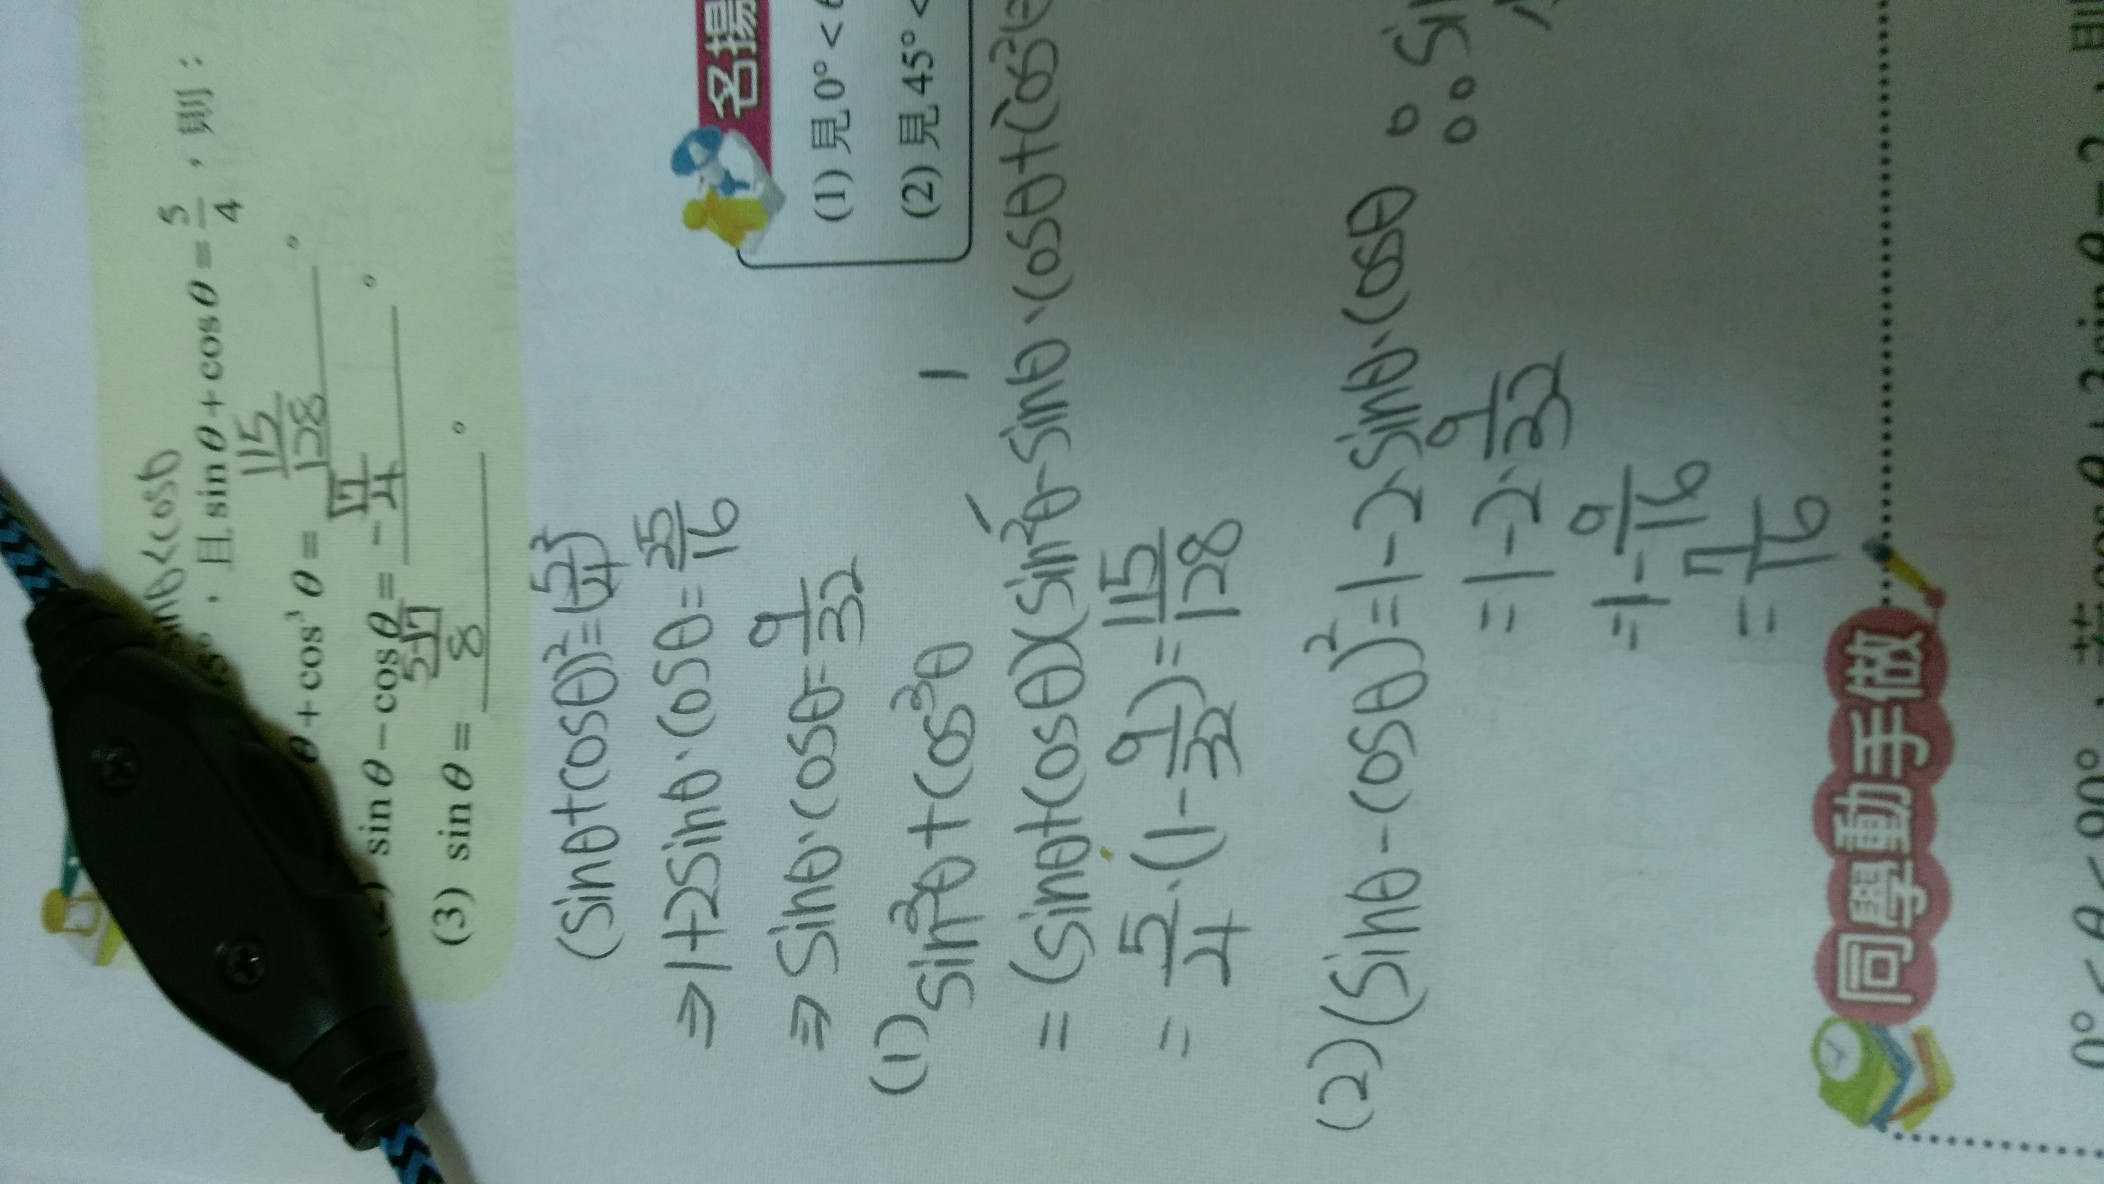 sinθ<cosθ
，且 sin θ + cos θ = 5/4 ，則：
θ + cos³ θ = 115/128 。
(2) sin θ − cos θ = -√7/4 。
(3) sin θ = 5-√7/8 。
(sinθ+cosθ)²=(5/4)²
⇒1+2sinθ·cosθ=25/16
⇒sinθ·cosθ=9/32
名揚
(1) 見 0° <
(2) 見 45° <
(1) sin³θ+cos³θ
=(sinθ+cosθ)(sin²θ-sinθ·cosθ+cos²θ
1
=5/4·(1-9/32)=115/128
(2)(sinθ-cosθ)²=1-2·sinθ·cosθ
=1-2·9/32
=1-9/16
=7/16
同學動手做
0° < θ < 90° ，若 cos θ + 2 sin θ = 2 ，則